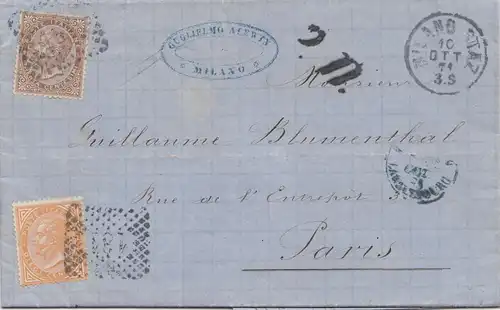 GUGLIELMO
MILANO
MILANO STAZ
10
OTT
71
3.S
Monsieur
Guillaume Blumenthal
Rue de l'Entrepôt 3
Paris